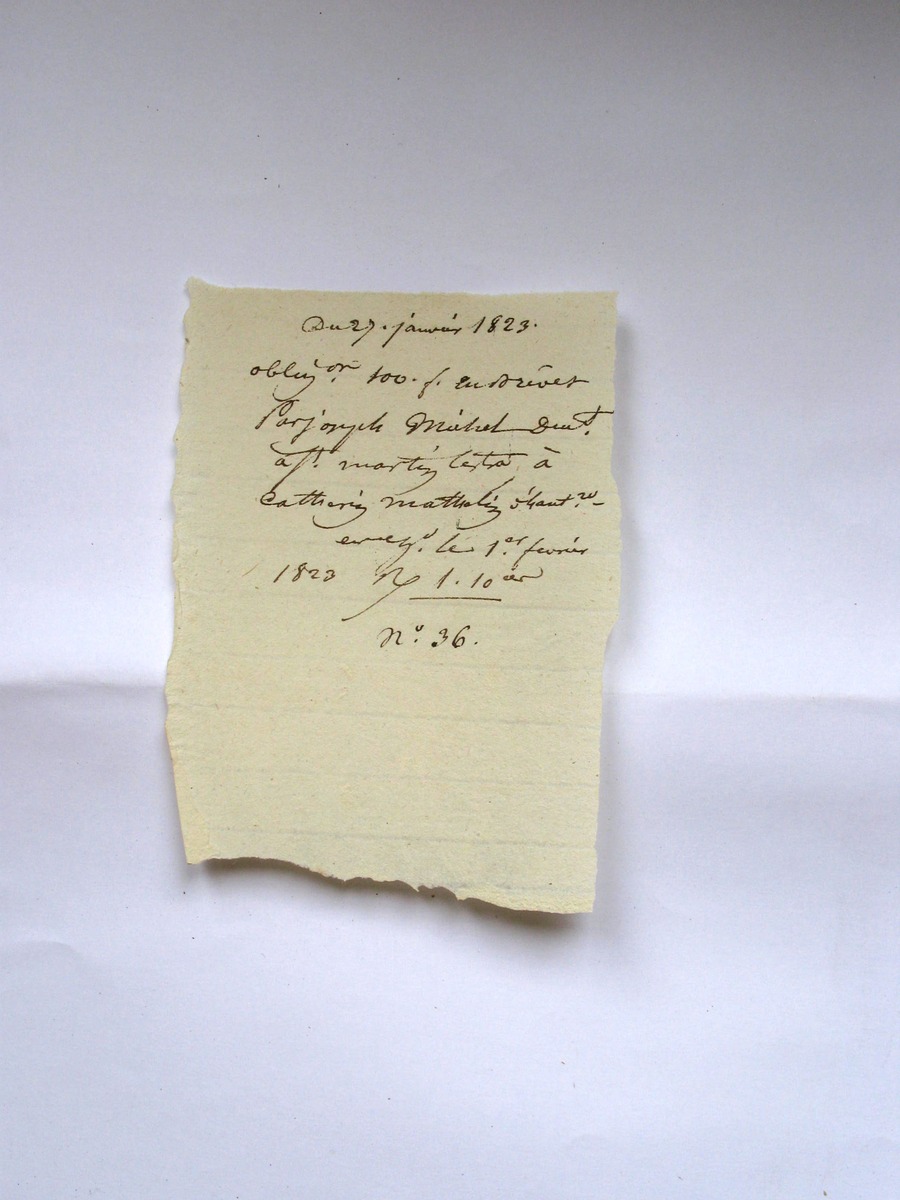 Du 27. janvier 1823.
oblig.on 100. f. en brevet
Par joseph Michel Dem.t
à st. martin lestra à
Catherin mathelin
le 1.er fevrier
1823 R 1. 10
N.o 36.